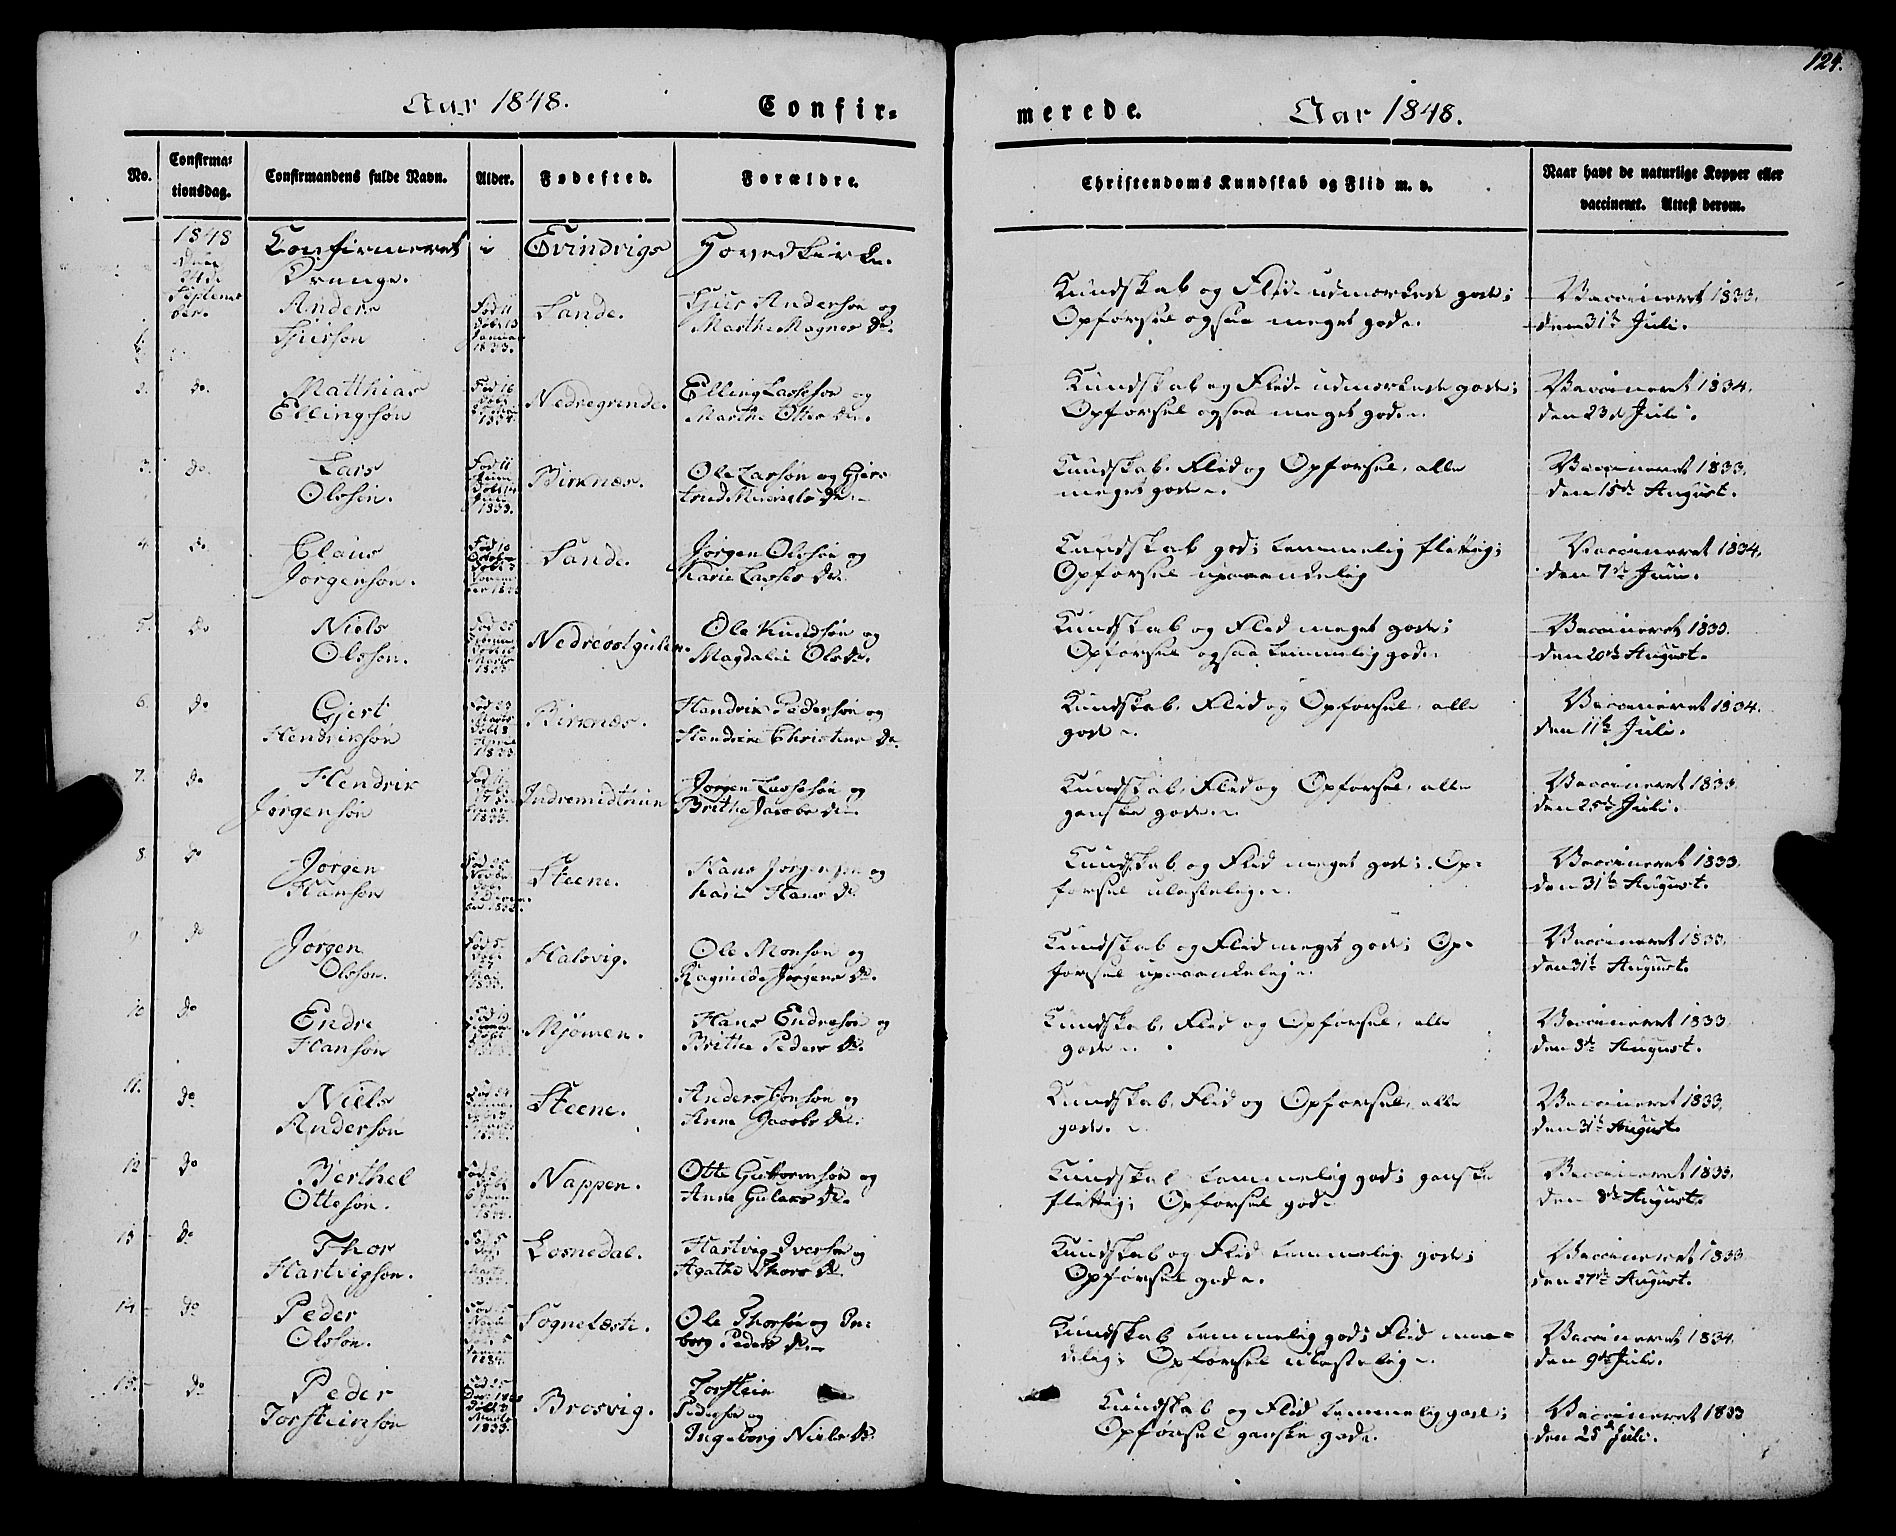 124.
Aar 1848.
Confir=
merede.
Aar 1848.
No.
Confirma=
tionsdag.
Confirmandens fulde Navn.
Alder.
Fødested.
Forældre.
Christendoms Kundskab og Flid m. v.
Naar havt de naturlige Kopper eller
vaccineret. Attest derom.
1848
Confirmeret i Evindvigs Hovedkirke.
Drenge.
Septem
ber.
1.
Anders
Sjurson
Født 11
Januar
1833.
Sande.
Sjur Anderson og
Marthe Magnes Dr.
Kundskab og Flid udmerkede gode;
Opførsel ogsaa meget gode.
Vaccineret 1833.
den 31te Juli.
2.
Do.
Matthias
Ellingsøn
Fød 16
Nedregrende.
Elling Lassesøn og
Marthe Ottes Dr.
Kundskab og Flid udmerkede gode;
Opførsel ogsaa meget gode.
Vaccineret 1834.
den 23de Juli.
3.
Do.
Lars
Olssøn.
Fød 11
1833.
Birknæs.
Ole Larsøn og Gjer
trud Dr.
Kundskab, Flid og Opførsel, alle
meget gode.
Vaccineret 1833.
den 15de August.
4.
Do
Claus
Jørgensøn.
Fød 10
Sande.
Jørgen Olssøn og
Karie Lasses Dr.
Kundskab god; temmelig flittig;
Opførsel upaaankelig
Vaccineret 1834.
den 7de Juni.
5.
Do
Niels
Olsson.
Nedreøstgulen.
Ole Knudsøn og
Magdalie Ols Dr.
Kundskab og Flid meget gode;
Opførsel ogsaa temmelig gode.
Vaccineret 1833.
den 20de August.
6.
Do
Gjert
Hendriksøn
1833
Birknæs.
Hendrik Pedersøn og
Hendrine Christens Dr.
Kundskab, Flid og Opførsel, alle
gode.
Vaccineret 1834.
den 11te Juli.
7.
Do
Hendrik
Jørgensøn
1833.
Indremidthun
Jørgen Lassesøn og
Brithe Jacobs Dr.
Kundskab, Flid og Opførsel, alle
ganske gode.
Vaccineret 1833.
den 25de Juli.
8.
Do
Jørgen
Hansøn
Fød 25
Steene.
Hans Jørgensen og
Karie Hans Dr
Kundskab og Flid meget gode; Op=
førsel ulastelig.
Vaccineret 1833.
den 31te August.
9
Do
Jørgen
Olsson.
Fød 5
1833.
Halsvig.
Ole Monsøn og
Ragnilde Jørgens Dr.
Kundskab og Flid meget gode; Op=
førsel upaaankelig.
Vaccineret 1833.
den 31te August.
10
Do
Endre
Hansøn
Fød 19
Mjømen.
Hans Endresøn og
Brithe Peders Dr.
Kundskab, Flid og Opførsel, alle
gode.
Vaccineret 1833.
den 8de August.
11.
Do
Niels
Andersøn
Steene.
Anders Jonsøn og
Anne Jacobs Dr.
Kundskab, Flid og Opførsel, alle
gode.
Vaccineret 1833.
den 31te August.
12
Do
Berthel
Ottesøn.
Nappen.
Otte Guttormsøn og
Anne Gulaks Dr.
Kundskab temmelig god; ganske
flittig; Opførsel gode
Vaccineret 1833.
den 8de August.
13
Do
Thor
Hartvigson.
Fød 5
Losnedal.
Hartvig Iversøn og
Agathe Thors Dr.
Kundskab og Flid temmelig gode;
Opførsel gode.
Vaccineret 1833
den 27de August.
14
Do
Peder
Olsøn.
Fød 15
1834.
Sognefæste.
Ole Thorsøn og In=
borg Peders Dr.
Kundskab temmelig god; Flid maa=
delig; Opførsel ulastelig.
Vaccineret 1834.
den 9de Juli.
15.
Do
Peder
Torsteinsøn
Fød 25
1833.
Brosvig.
Torstein
Pedersøn og
Ingeborg Niels Dr.
Kundskab og Flid temmelig gode;
Opførsel ganske gode.
Vaccineret 1833
den 25de Juli.